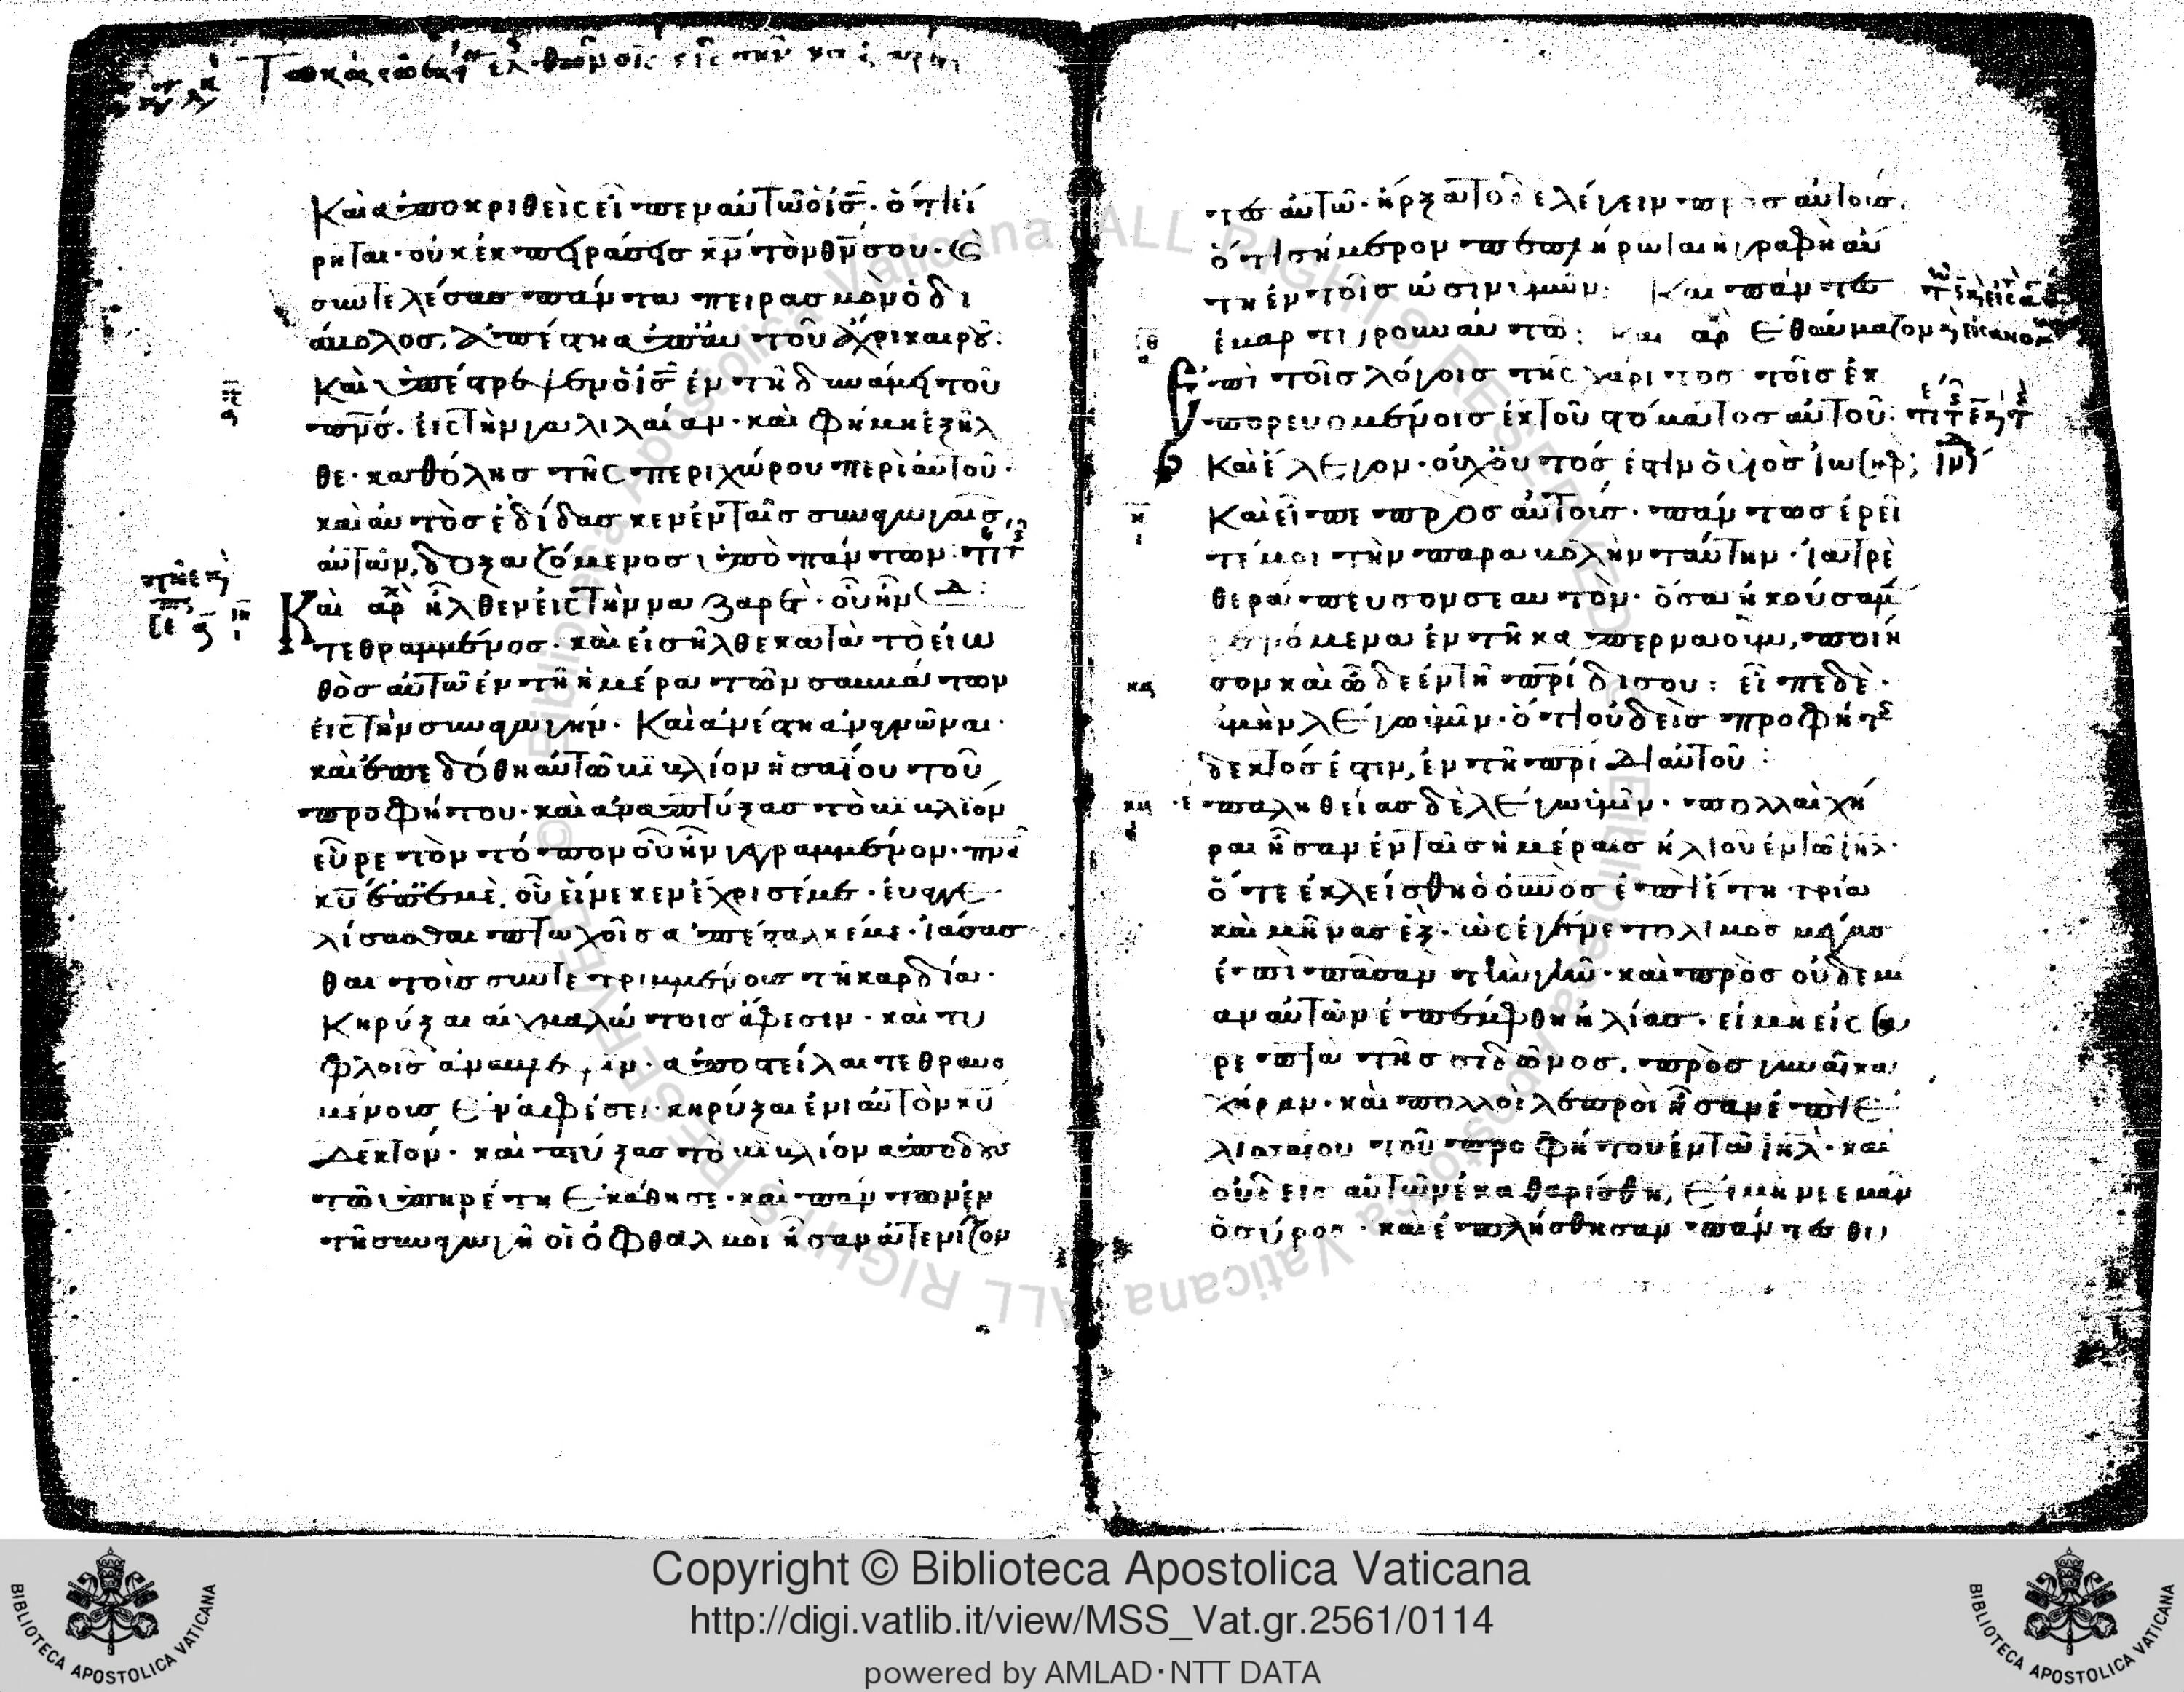 Καὶ ἀποκριθεὶς εἶπεν αὐτῶ ὁ ἰς̅. ὅτι εἴ
ρηται· οὐκ ἐκπειράσεις κν̅ τὸν θν̅ σου· καὶ
συντελέσας πάντα πειρασμὸν ὁ δι
άβολος, ἀπέστη ἀπ' αὐτοῦ ἄχρι καιροῦ:
Καὶ ὑπέστρεψεν ὁ ἰς̅ ἐν τῆ δυνάμει τοῦ
πνς̅. εἰς τὴν γαλιλαίαν· καὶ φήμη ἐξῆλ
θε· καθόλης τῆς περιχώρου περὶ αὐτοῦ·
καὶ αὐτὸς ἐδίδασκεν ἐν ταῖς συναγωγαῖς
αὐτῶν, δοξαζόμενος ὑπὸ πάντων:
Καὶ ἦλθεν εἰς τὴν ναζαρετ· οὗ ἦν
τεθραμμένος· καὶ εἰσῆλθε κατὰ τὸ εἰω
θὸς αὐτῶ ἐν τῆ ἡμέρα τῶν σαββάτων
εἰς τὴν συναγωγήν· Καὶ ἀνέστη ἀναγνῶναι·
καὶ ἐπεδόθη αὐτῶ βιβλίον ἠσαΐου τοῦ
προφήτου· καὶ ἀναπτύξας τὸ βιβλίον
εὗρε τὸν τόπον οὗ ἦν γεγραμμένον· πνα̅
κυ̅ ἐπ' ἐμὲ, οὗ εἵνεκεν ἔχρισέ με· εὐαγγε
λίσασθαι πτωχοῖς ἀπέσταλκέ με· ἰάσασ
θαι τοὺς συντετριμμένους τὴ καρδία·
Κηρύξαι αἰχμαλώτοις ἄφεσιν· καὶ τυ
φλοῖς ἀνάβλεψιν· ἀποστεῖλαι τεθραυσ
μένους ἐν ἀφέσει· κηρύξαι ἐνιαυτὸν κυ̅
Δεκτόν· καὶ πτύξας τὸ βιβλίον ἀποδοὺς
τῶ ὑπηρέτη ἐκάθησε· καὶ πάντων ἐν
τῆ συναγωγῆ οἱ ὀφθαλμοὶ ἦσαν ἀτενίζον
τες αὐτῶ· ἤρξατο δὲ λέγειν πρὸς αὐτούς.
ὅτι σήμερον πεπλήρωται ἡ γραφὴ αὕ
τη ἐν τοῖς ὠσὶν ὑμῶν· Καὶ πάντες
ἐμαρτύρουν αὐτῶ: καὶ ἐθαύμαζον
ἐπὶ τοῖς λόγοις τῆς χάριτος τοῖς ἐκ
πορευομένοις ἐκ τοῦ στόματος αὐτοῦ:
Καὶ ἔλεγον· οὐχ οὗτός ἐστιν ὁ υἱὸς ἰωσήφ;
Καὶ εἶπε πρὸς αὐτούς· πάντως ἐρεῖ
τέ μοι τὴν παραβολὴν ταύτην· ἰατρὲ
θεράπευσον σεαυτόν· ὅσα ἠκούσαμεν
γενόμενα ἐν τῆ καπερναούμ, ποίη
σον καὶ ὧδε ἐν τῆ πρίδι σου: εἶπε δὲ·
ἀμὴν λέγω ὑμῖν· ὅτι οὐδεὶς προφήτης
δεκτός ἐστιν, ἐν τῆ πρίδι αὐτοῦ:
ἐπαληθείας δὲ λέγω ὑμῖν· πολλαὶ χῆ
ραι ἦσαν ἐν ταῖς ἡμέραις ἠλιοῦ ἐν τῶ ἰηλ̅·
ὅτε ἐκλείσθη ὁ οὐνὸς ἐπὶ ἔτη τρία
καὶ μῆνας ἓξ· ὡς ἐγένετο λιμὸς μέγας
ἐπὶ πᾶσαν τὴν γῆν· καὶ πρὸς οὐδεμί
αν αὐτῶν ἐπέμφθη ἠλίας. εἰ μὴ εἰς σα
ρεπτα τῆς σιδῶνος. πρὸς γυναῖκα
χήραν· καὶ πολλοὶ λεπροὶ ἦσαν ἐπὶ ἐ
λισσαίου τοῦ προφήτου ἐν τῶ ἰηλ̅· καὶ
οὐδεὶς αὐτῶν ἐκαθαρίσθη, εἰ μὴ νεεμὰν
ὁ σύρος· καὶ ἐπλήσθησαν πάντες θυ
Copyright © Biblioteca Apostolica Vaticana
http://digi.vatlib.it/view/MSS_Vat.gr.2561/0114
powered by AMLAD·NTT DATA
BIBLIOTECA APOSTOLICA VATICANA
BIBLIOTECA APOSTOLICA VATICANA